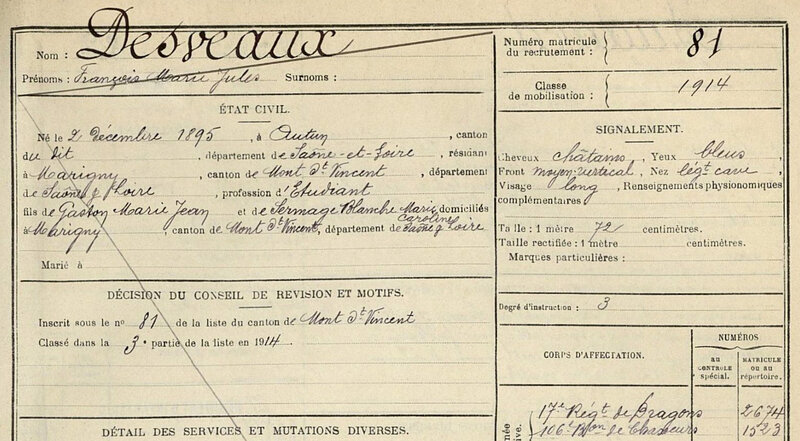 Nom : Desveaux
Prénoms : François Marie Jules Surnoms :
ÉTAT CIVIL.
Né le 2 Décembre 1895, à Autun, canton
du dit, département de Saône-et-Loire, résidant
à Marigny, canton de Mont St Vincent, département
de Saône & Loire, profession d'Etudiant
fils de Gaston Marie Jean et de Sermage Blanche Marie Caroline domiciliés
à Marigny, canton de Mont St Vincent, département de Saône & Loire
Marié à
DÉCISION DU CONSEIL DE REVISION ET MOTIFS.
Inscrit sous le no 81 de la liste du canton de Mont St Vincent
Classé dans la 3e partie de la liste en 1914
DÉTAIL DES SERVICES ET MUTATIONS DIVERSES.
Numéro matricule
du recrutement : 81
Classe
de mobilisation : 1914
SIGNALEMENT.
Cheveux châtains, Yeux bleus
Front moyen-vertical, Nez légt cave
Visage long, Renseignements physionomiques
complémentaires
Taille : 1 mètre 72 centimètres.
Taille rectifiée : 1 mètre centimètres.
Marques particulières :
Degré d'instruction : 3
CORPS D'AFFECTATION.
NUMÉROS
AU
CONTRÔLE
spécial.
MATRICULE
OU AU
répertoire.
17e Régt de Dragons 2674
106e Bon de Chasseurs 1523